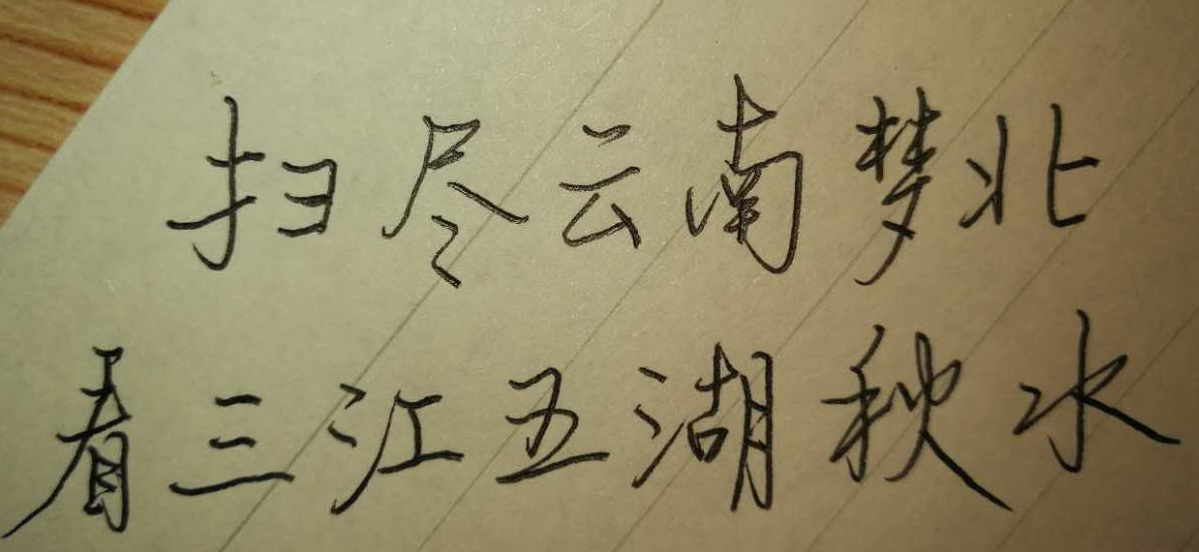 扫尽云南梦北
看三江五湖秋水